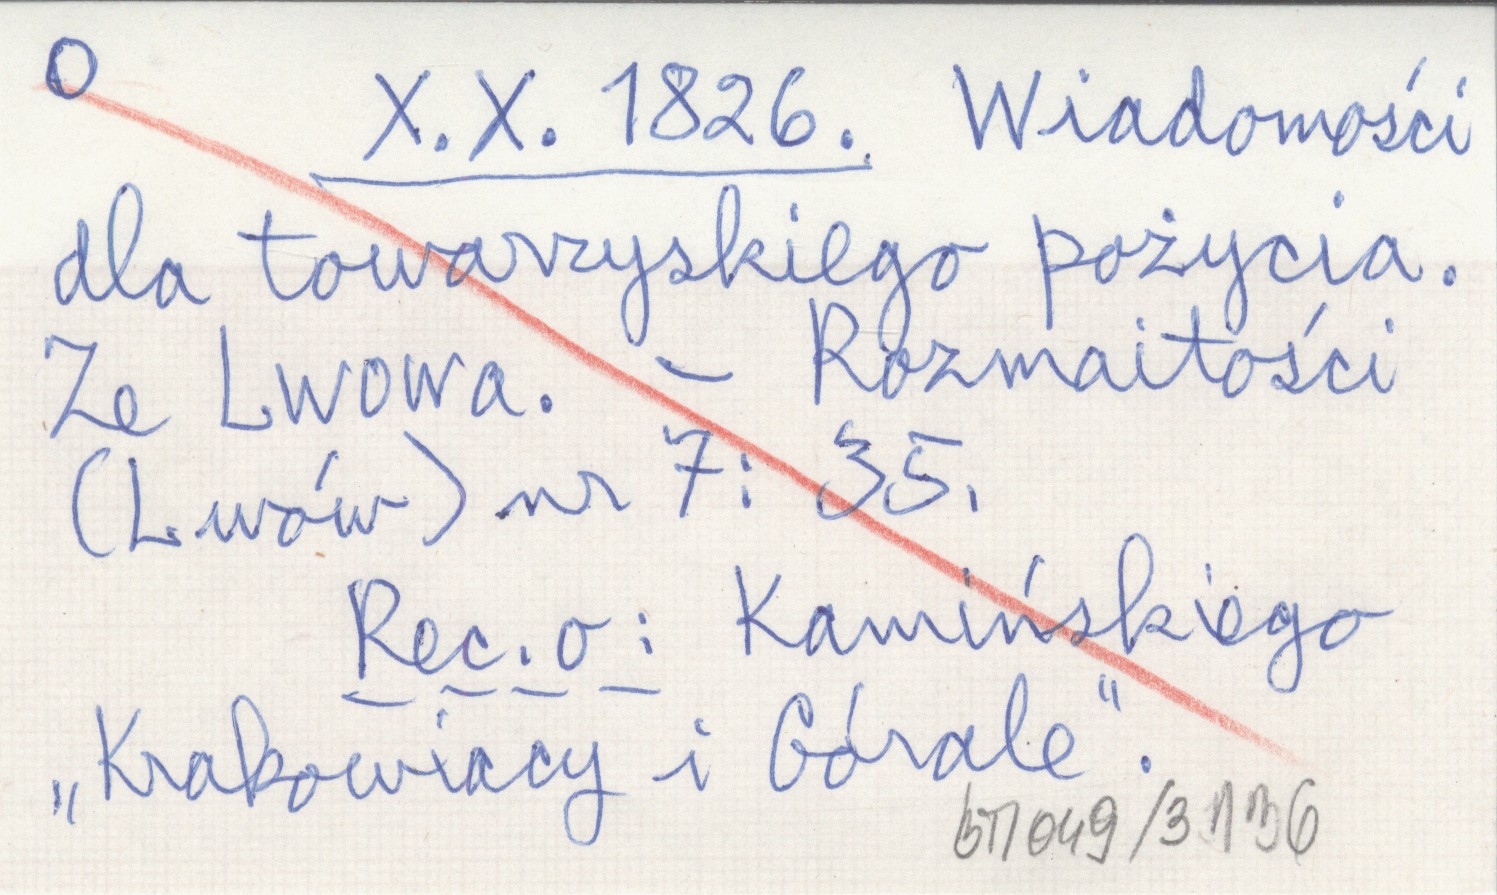 O X.X. 1826. Wiadomości
dla towarzyskiego pożycia.
Ze Lwowa. – Rozmaitości
(Lwów) nr 7: 35.
Rec. o: Kamińskiego
„Krakowiacy i Górale".